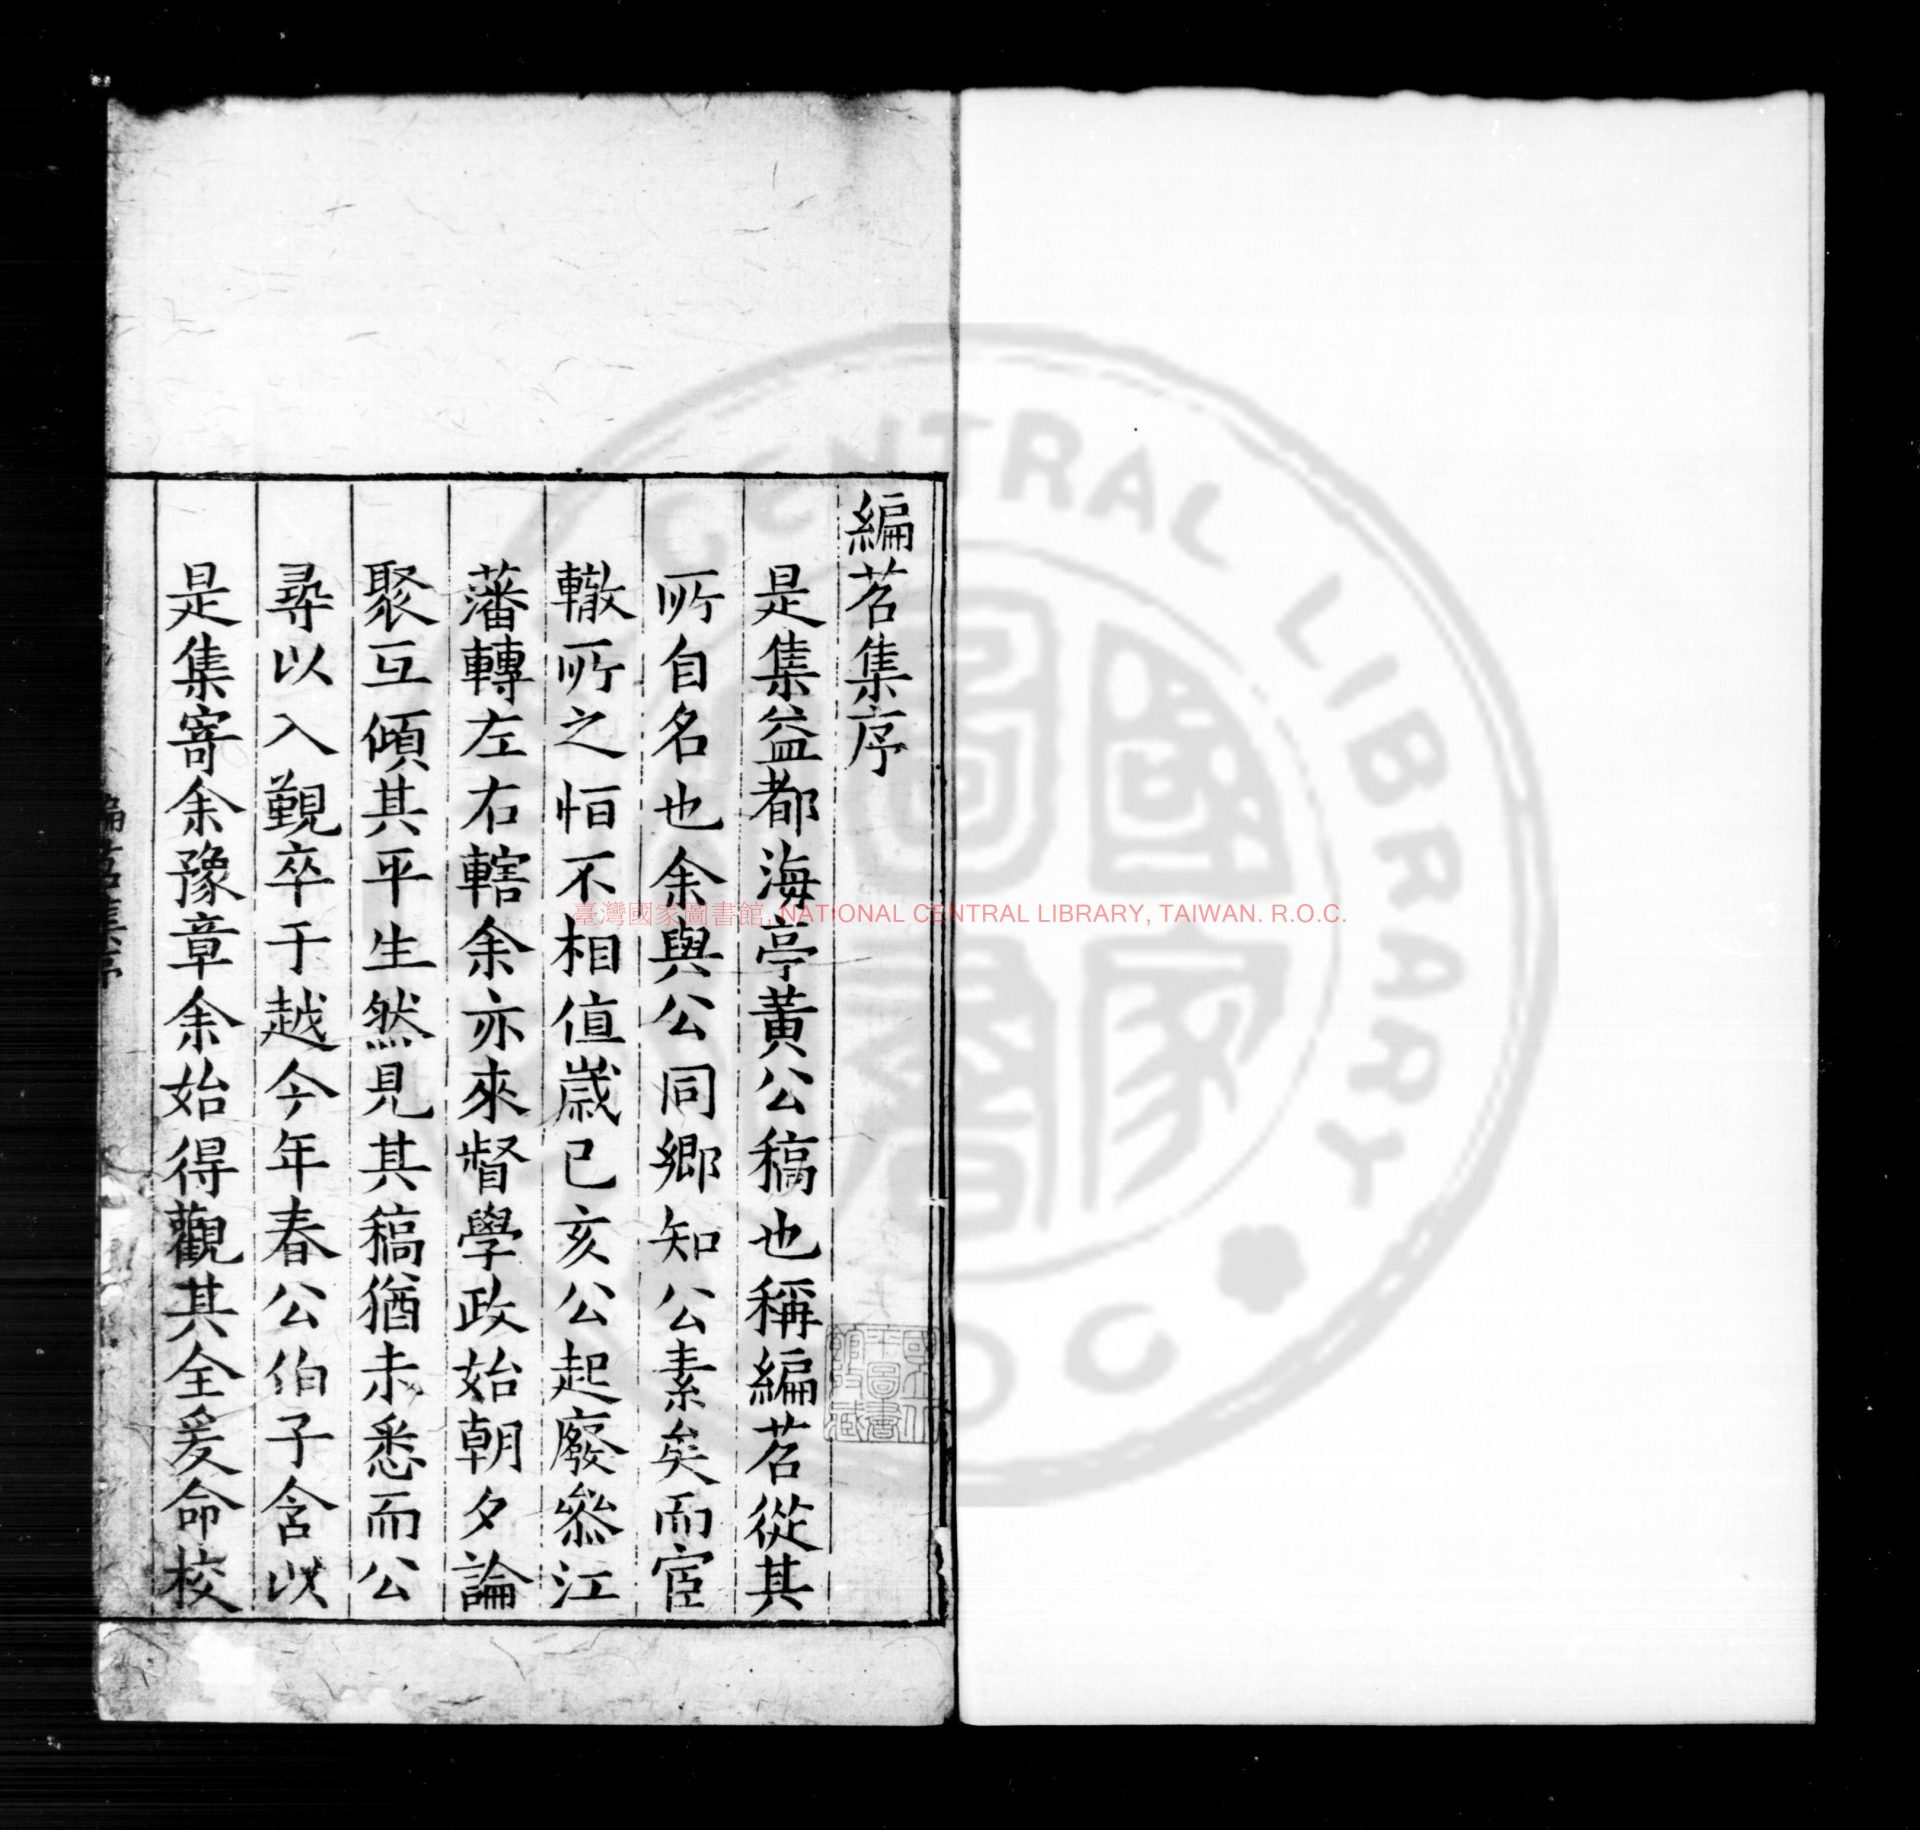 編苕集序
是集益都海亭黃公稿也稱編苕從其
所自名也余與公同鄉知公素矣而宦
轍所之恒不相值歲己亥公起廢叅江
藩轉左右轄余亦來督學政始朝夕論
聚互傾其平生然見其稿猶未悉而公
尋以入覲卒于越今年春公伯子含以
是集寄余豫章余始得觀其全爰命校
臺灣國家圖書館, NATIONAL CENTRAL LIBRARY, TAIWAN. R.O.C.
CENTRAL LIBRARY